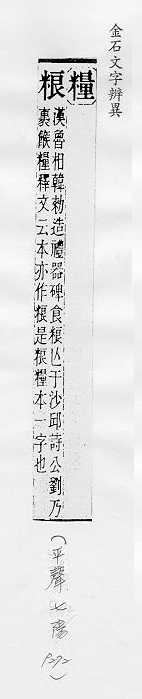 金石文字辨異
糧
粻
漢魯相韓勅造禮器碑食粻亾于沙邱詩公劉乃
裹餱糧釋文云本亦作粻是粻糧本一字也
(平聲七陽 P272)